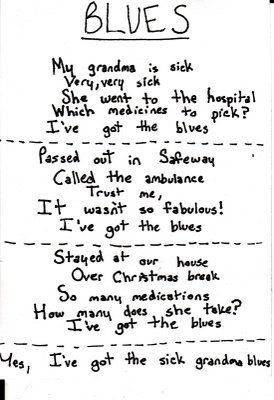 BLUES
My grandma is sick
Very, very sick
She went to the hospital
Which medicines to pick?
I've got the blues
Passed out in Safeway
Called the ambulance
Trust me,
It wasn't so fabulous!
I've got the blues
Stayed at our house
Over Christmas break
So many medications
How many does she take?
I've got the blues
Yes, I've got the sick grandma blues